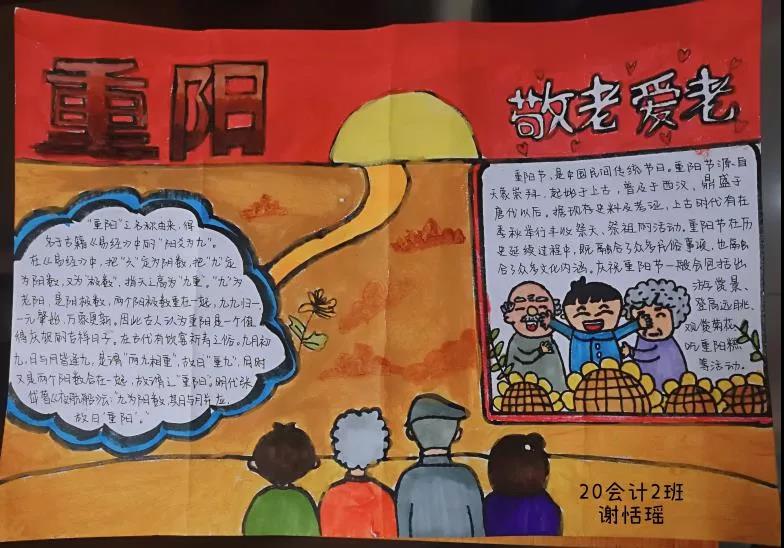 重阳
敬老爱老
"重阳"之名称由来,得
名于古籍《易经》中的"阳爻为九"。
在《易经》中,把"六"定为阴数,把"九"定
为阳数,又为"极数",指天之高为"九重"。"九"为
老阳,是阳极数,两个阳极数重在一起,九九归一
一元肇始,万象更新。因此古人认为重阳是一个值
得庆贺的吉祥日子。在古代有饮宴祈寿之俗。九月初
九,日与月皆逢九,是谓"两九相重",故曰"重九",同时
又是两个阳数合在一起,故谓之"重阳"。明代张
岱著《夜航船》法:"九为阳数,其日与月并应,
故曰"重阳"。"
重阳节,是中国民间传统节日。重阳节源自
天象崇拜,起始于上古,普及于西汉,鼎盛于
唐代以后。据现存史料及考证,上古时代有在
季秋举行丰收祭天、祭祖的活动。重阳节在历
史延续过程中,既融合了众多民俗事项,也融
合了众多文化内涵。庆祝重阳节一般会包括出
游赏景、
登高远眺、
观赏菊花、
吃重阳糕
等活动。
20会计2班
谢恬瑶